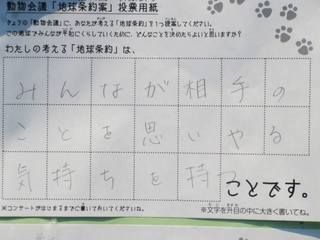 動物会議「地球条約案」投票用紙
きょうの「動物会議」に、あなたが考える「地球条約」を1つ提案してください。
この地球でみんなが平和にくらしていくために、どんなことを決めたらよいと思いますか?
わたしの考える「地球条約」は、
みんなが相手の
ことを思いやる
気持ちを持つ
ことです。
※コンサートがはじまるまでに書いておいてくださいね。
※文字を升目の中に大きく書いてね。